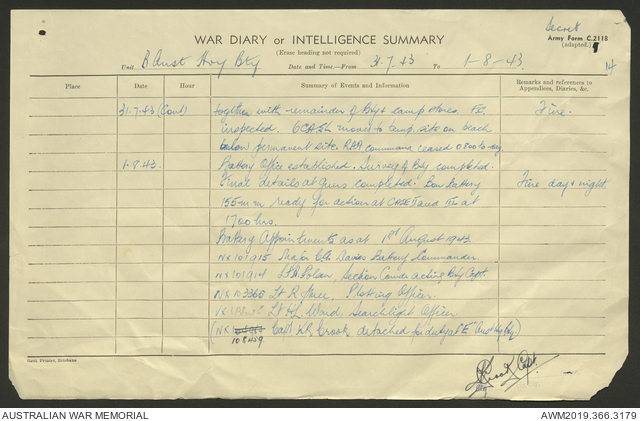 Secret
WAR DIARY or INTELLIGENCE SUMMARY
Army Form C.2118
(Erase heading not required)
(adapted.)
Unit B Aust Hvy Bty Date and Time—From 31.7.43 To 1-8-43
14
Place Date Hour Summary of Events and Information Remarks and references to Appendices, Diaries, &c.
31.7.43 (Cont) together with remainder of Btys camp stores. Fine.
inspected. moves to temp. site on beach
below permanent site. RAA command ceased 0800
1.8.43. Battery Office established. Survey of Bty completed.
Final details at Guns completed. Battery Fine day & night.
155 m.m ready for action at and at
1700 hrs.
Battery Appointments as at 1st August 1943
NX101915 Major Davies Battery Commander.
NX101914 Lt Section Comdr acting Bty Capt
NX103366 Lt R Plotting Officer.
Lt H L Ward, Searchlight Officer
(NX Capt Crook detached for duty at "E" Aust Hy Bty)
108459
Govt Printer, Brisbane
Crook Capt.
AUSTRALIAN WAR MEMORIAL
AWM2019.366.3179